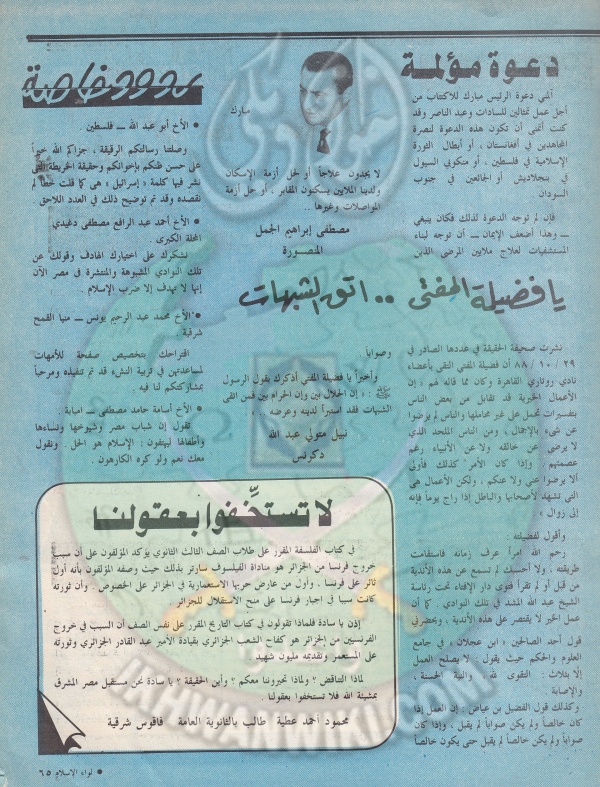 دعوة مؤلمة
ألمتني دعوة الرئيس مبارك للاكتتاب من
أجل عمل تمثالين للسادات وعبد الناصر وقد
كنت أتمنى أن تكون هذه الدعوة لنصرة
المجاهدين في أفغانستان ، أو أبطال الثورة
الإسلامية في فلسطين ، أو منكوبي السيول
في بنجلاديش أو الجائعين في جنوب
السودان .
فإن لم توجه الدعوة لذلك فكان ينبغي
ــ وهذا أضعف الإيمان ــ أن توجه لبناء
المستشفيات لعلاج ملايين المرضى الذين
مبارك
لا يجدون علاجاً أو حل أزمة الإسكان
ولدينا الملايين يسكنون المقابر ، أو حل أزمة
المواصلات وغيرها ..
مصطفى إبراهيم الجمل
المنصورة
يا فضيلة المفتى .. اتق الشبهات
نشرت صحيفة الحقيقة في عددها الصادر في
٢٩ / ١٠ / ٨٨ أن فضيلة المفتي التقى بأعضاء
نادي روتاري القاهرة وكان مما قاله لهم : إن
الأعمال الخيرية قد تقابل من بعض الناس
بتفسيرات تحمل على غير محاملها والناس لم يرضوا
عن شيء بالإجمال ، ومن الناس الملحد الذي
لا يرضى عن خالقه ولا عن الأنبياء رغم
عصمتهم . وإذا كان الأمر كذلك فأولى
ألا يرضوا عني ولا عنكم ، ولكن الأعمال هي
التي تشهد لأصحابها والباطل إذا راج يوماً فإنه
إلى زوال »
وأقول لفضيلته :
رحم الله امرأ عرف زمانه فاستقامت
طريقته ، ولا أحسبك لم تسمع عن هذه الأندية
من قبل أو لم تقرأ فتوى دار الإفتاء تحت رئاسة
الشيخ عبد الله المشد في تلك النوادي . كما أن
عمل الخير لا يقتصر على هذه الأندية ، ويحضرني
قول أحد الصالحين : ابن عجلان ، في جامع
العلوم والحكم حيث يقول : لا يصلح العمل
إلا بثلاث : التقوى لله ، والنية الحسنة ،
والإصابة
وكذلك قول الفضيل بن عياض : إن العمل إذا
كان خالصاً ولم يكن صواباً لم يقبل ، وإذا كان
صواباً ولم يكن خالصاً لم يقبل حتى يكون خالصاً
وصواباً
وأخيراً يا فضيلة المفتي أذكرك بقول الرسول
ﷺ : « إن الحلال بين وإن الحرام بين فمن اتقى
الشبهات فقد استبرأ لدينه وعرضه .. »
نبيل متولي عبد الله
دكرنس
ردود خاصة
● الأخ أبو عبد الله ــ فلسطين .
وصلتنا رسالتكم الرقيقة ، جزاكم الله خيراً
على حسن ظنكم بإخوانكم وحقيقة الخريطة التي
نشر فيها كلمة « إسرائيل » هي كما قلت خطأ لم
نقصده وقد تم توضيح ذلك في العدد اللاحق .
● الأخ أحمد عبد الرافع مصطفى دغيدي
المحلة الكبرى .
نشكرك على اختيارك الهادف وقولك عن
تلك النوادي المشبوهة والمنتشرة في مصر الآن
إنها لا تهدف إلا ضرب الإسلام .
● الأخ محمد عبد الرحيم يونس ــ منيا القمح
شرقية
اقتراحك بتخصيص صفحة للأمهات
لمساعدتهن في تربية النشء قد تم تنفيذه ومرحباً
بمشاركتكم لنا فيه .
● الأخ أسامة حامد مصطفى ــ امبابة .
تقول إن شباب مصر وشيوخها ونساءها
وأطفالها ليهتفون : الإسلام هو الحل . ونقول
معك نعم ولو كره الكارهون .
لا تستخفوا بعقولنا
في كتاب الفلسفة المقرر على طلاب الصف الثالث الثانوي يؤكد المؤلفون على أن سبب
خروج فرنسا من الجزائر هو مناداة الفيلسوف سارتر بذلك حيث وصفه المؤلفون بأنه أول
ثائر على فرنسا ، وأول من عارض حربها الاستعمارية في الجزائر على الخصوص . وأن ثورته
كانت سبباً في إجبار فرنسا على منح الاستقلال للجزائر .
إذن يا سادة فلماذا تقولون في كتاب التاريخ المقرر على نفس الصف أن السبب في خروج
الفرنسيين من الجزائر هو كفاح الشعب الجزائري بقيادة الأمير عبد القادر الجزائري وثورته
على المستعمر وتقديمه مليون شهيد
لماذا التناقض ؟ ولماذا تحيروننا معكم ؟ وأين الحقيقة ؟ يا سادة نحن مستقبل مصر المشرق
بمشيئة الله فلا تستخفوا بعقولنا .
محمود أحمد عطية طالب بالثانوية العامة فاقوس شرقية
● لواء الإسلام ٦٥
IKHWANWIKI.COM